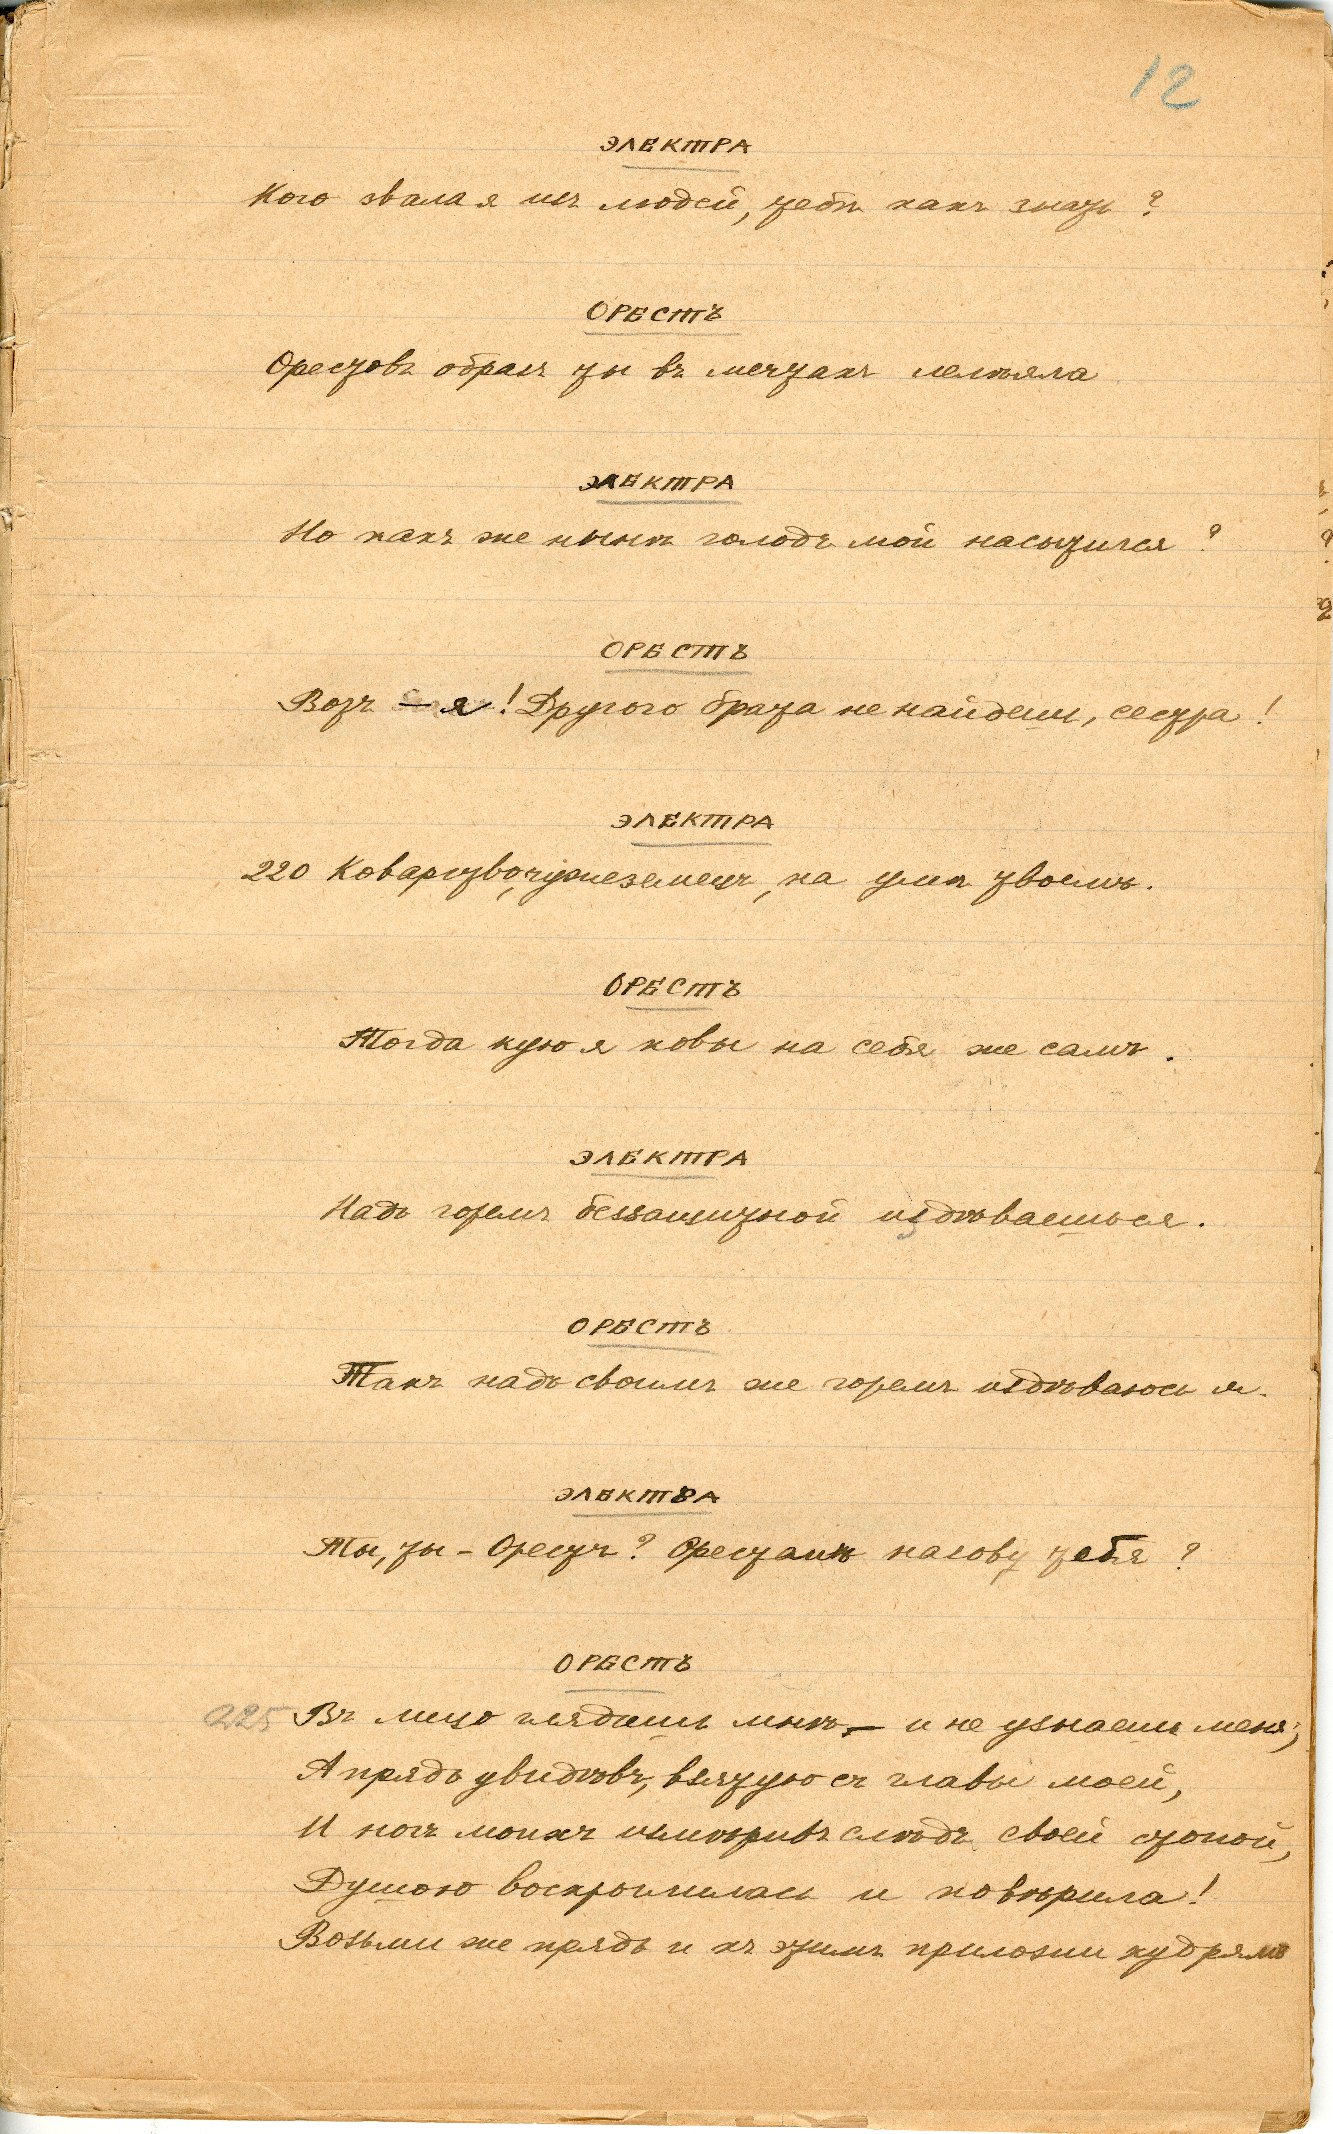 12
ЭЛЕКТРА
Кого звала я изъ людей, тебѣ какъ знать?
ОРЕСТЪ
Орестовъ образъ ты въ мечтахъ лелѣяла
ЭЛЕКТРА
Но какъ же нынѣ голодъ мой насытился?
ОРЕСТЪ
Вотъ — я! Другого брата не найдешь, сестра!
ЭЛЕКТРА
220 Коварство, чужеземецъ, на умѣ твоемъ.
ОРЕСТЪ
Тогда кую я ковы на себя же самъ.
ЭЛЕКТРА
Надъ горемъ беззащитной издѣваешься.
ОРЕСТЪ
Такъ надъ своимъ же горемъ издѣваюсь я.
ЭЛЕКТРА
Ты, ты – Орестъ? Орестомъ назову тебя?
ОРЕСТЪ
225 Въ лицо глядишь мнѣ, — и не узнаешь меня;
А прядь увидѣвъ, взятую съ главы моей,
И ногъ моихъ измѣривъ слѣдъ своей стопой,
Душою воскрылилась и повѣрила!
Возьми же прядь и къ этимъ приложи кудрямъ